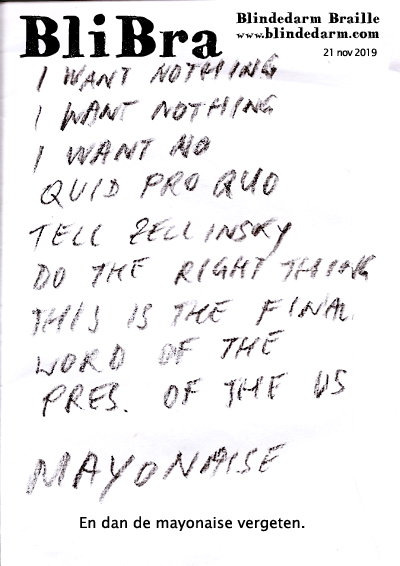 BliBra
Blindedarm Braille
www.blindedarm.com
21 nov 2019
I WANT NOTHING
I WANT NOTHING
I WANT NO
QUID PRO QUO
TELL ZELLINSKY
DO THE RIGHT THING
THIS IS THE FINAL
WORD OF THE
PRES. OF THE US
MAYONAISE
En dan de mayonaise vergeten.